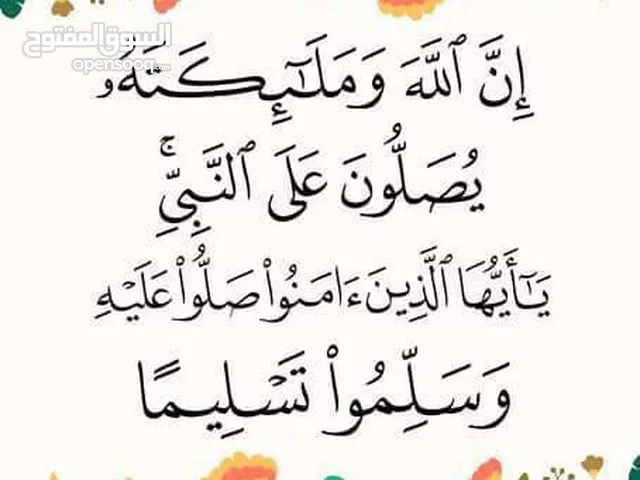 السوق المفتوح
opensooq.com
إِنَّ ٱللَّهَ وَمَلَـٰٓئِكَتَهُۥ
يُصَلُّونَ عَلَى ٱلنَّبِىِّ ۚ
يَـٰٓأَيُّهَا ٱلَّذِينَ ءَامَنُوا۟ صَلُّوا۟ عَلَيْهِ
وَسَلِّمُوا۟ تَسْلِيمًا